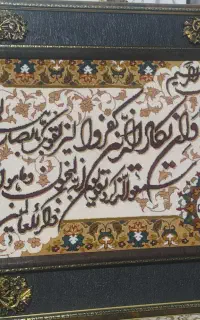 وان یکاد الذین کفروا لیزلقونک
سمعوا الذکر و یقولون انه لمجنون و ما هو
ذکر للعالمین